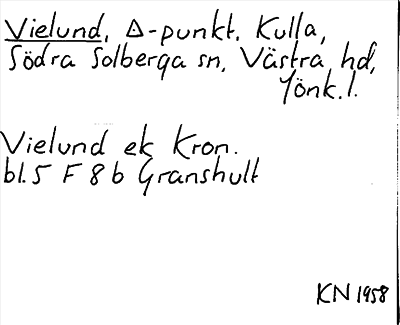 Vielund, △-punkt. Kulla,
Södra Solberga sn, Västra hd,
Jönk. l.
Vielund ek Kron.
bl. 5 F 8 b Granshult
KN 1958